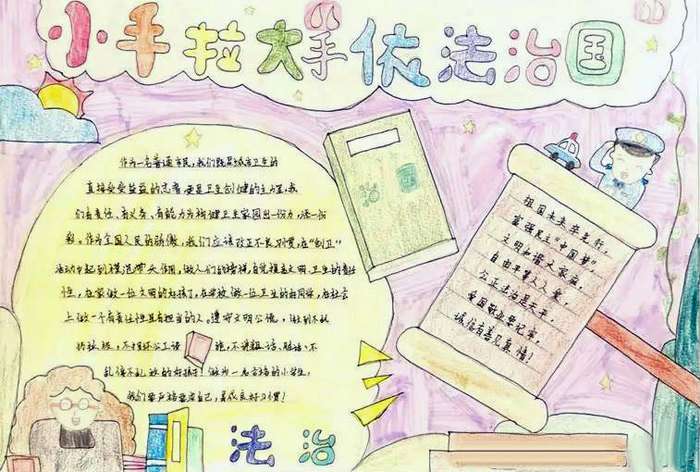 小手拉大手依法治国
作为一名普通市民，我们既是城市卫生的
直接受益的志者，更是卫生创健的主理，我
们有责任、有义务、有能力为构健卫生家园出一份力，添一份
彩。作为全国人民的骄傲，我们应该改正不良习惯，在"创卫"
活动中起到模范带头作用，做人们的榜样，自觉提高文明卫生的责任
性，在家做一位文明的好孩子，在学校做一位卫生的好同学，在社会
上做一个有责任性且有担当的人。遵守文明公德，做到不乱
扔垃圾，不损坏公工设施，不说粗话、脏话、不
乱传不乱放的好孩子！做为一名合格的小学生，
我们要严格要求自己，养成良好习惯！
祖国未来在先行，
富强民主"中国梦"，
文明和谐大家庭，
自由平等人人爱，
公正法治是天平，
爱国敬业要记牢，
诚信友善见真情！
法治